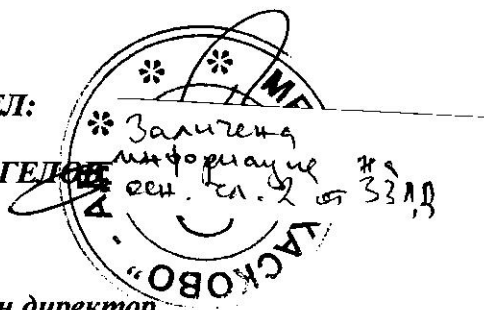 ЕЛ:
Заличена
информация на
осн. чл. 2 от ЗЗЛД
ГЕЛОВ
ХАСКОВО" - А
н директор